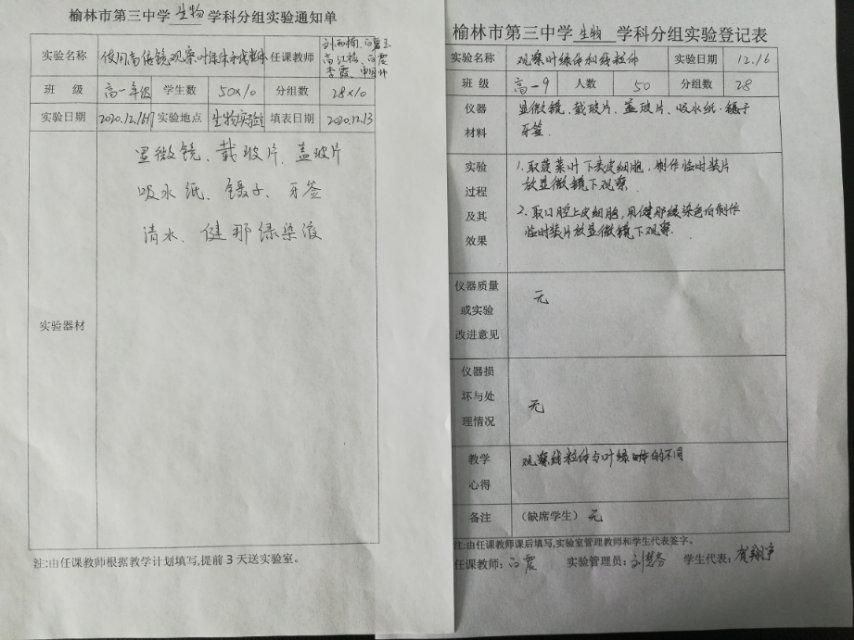 榆林市第三中学 生物 学科分组实验通知单
实验名称 使用高倍镜观察叶绿体和线粒体 任课教师
高红梅 白震
李霞
班 级 高一年级 学生数 50×10 分组数 28×10
实验日期 2020.12.16/17 实验地点 生物实验室 填表日期 2020.12.13
实验器材
显微镜、载玻片、盖玻片
吸水纸、镊子、牙签
清水、健那绿染液
注:由任课教师根据教学计划填写,提前3天送实验室。
榆林市第三中学 生物 学科分组实验登记表
实验名称 观察叶绿体和线粒体 实验日期 12.16
班 级 高一9 人数 50 分组数 28
仪器材料 显微镜、载玻片、盖玻片、吸水纸、镊子
牙签
实验过程及其效果
1.取菠菜叶下表皮细胞,制作临时装片
放显微镜下观察.
2.取口腔上皮细胞,用健那绿染色后制作
临时装片放显微镜下观察.
仪器质量或实验改进意见 无
仪器损坏与处理情况 无
教学心得 观察线粒体与叶绿体的不同
备注 (缺席学生) 无
注:由任课教师课后填写,实验室管理教师和学生代表签字。
任课教师: 白震 实验管理员: 学生代表: